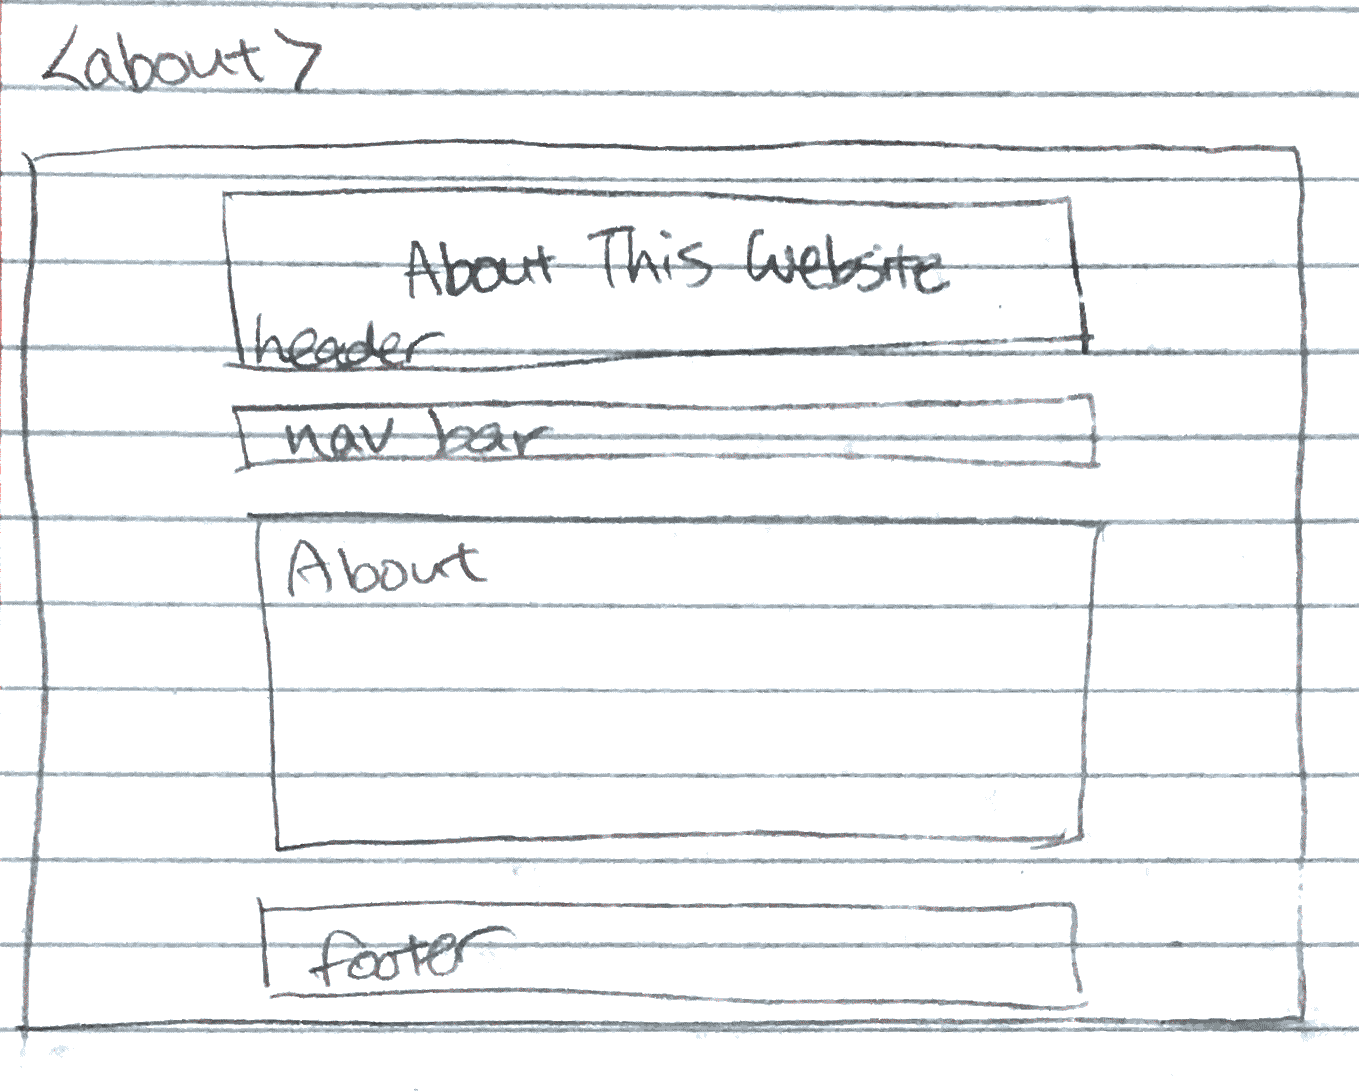 <about>
About This Website
header
nav bar
About
footer